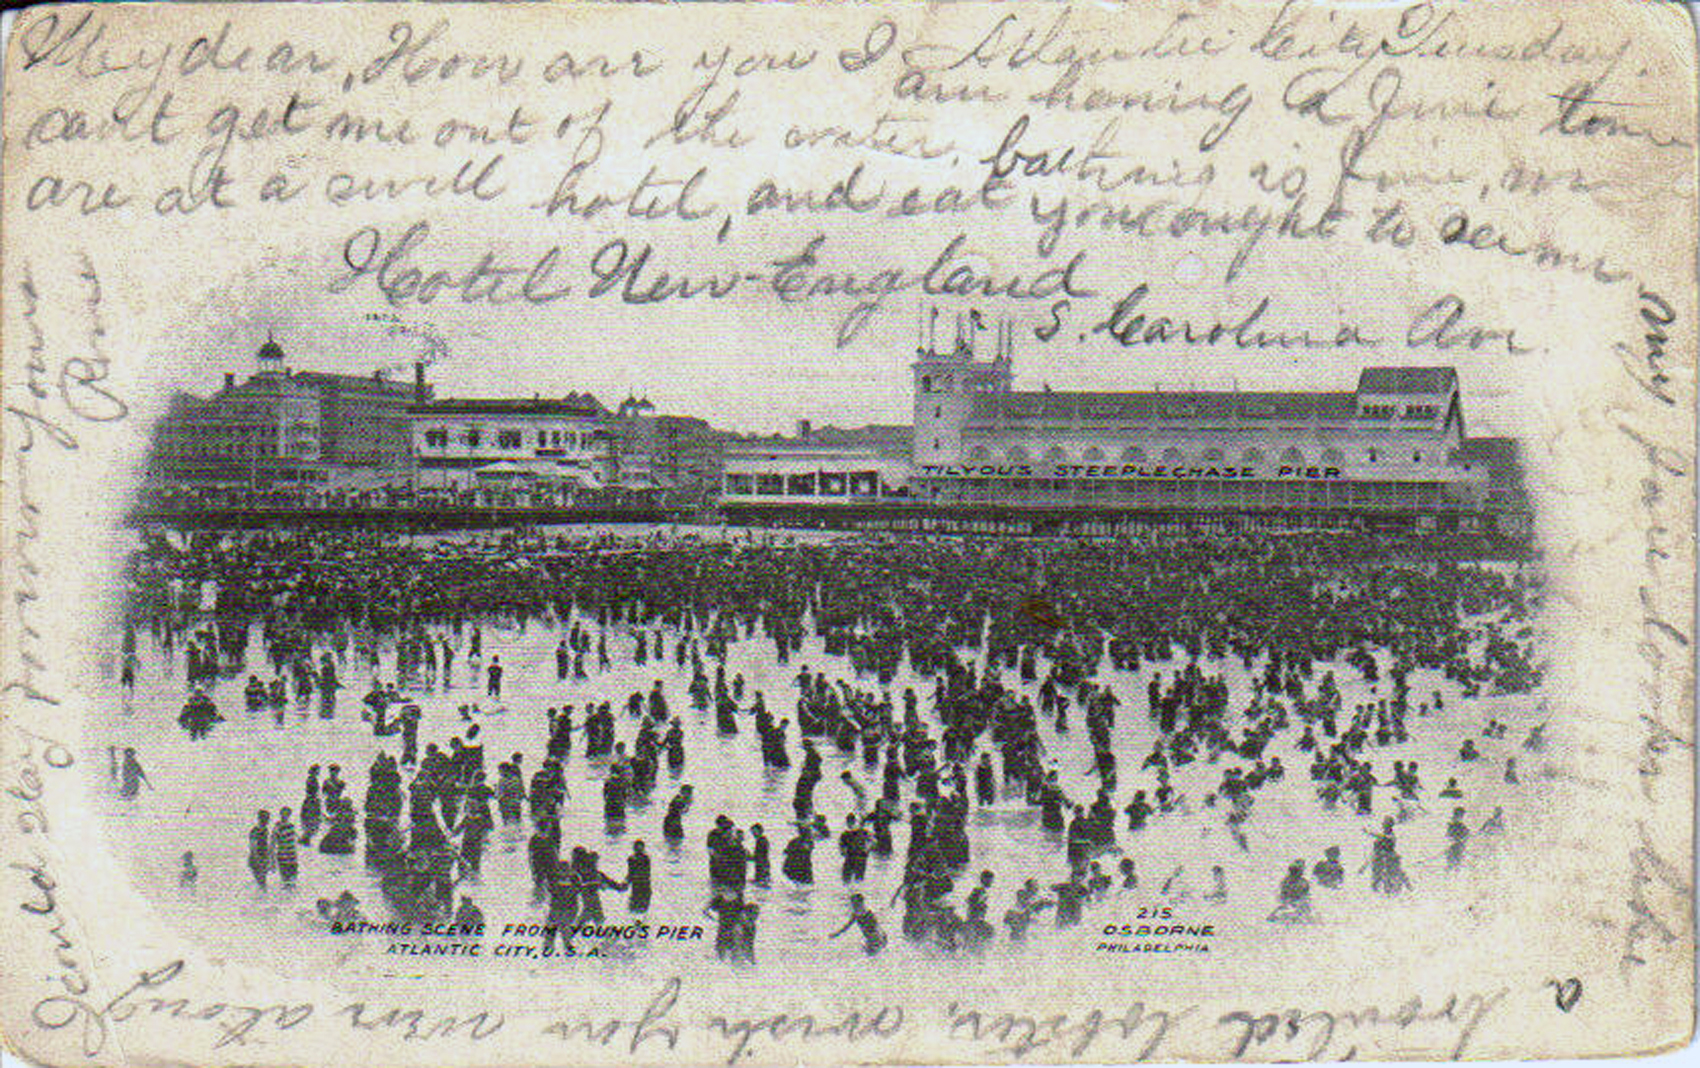 Atlantic City Tuesday.
My dear, How are you I
am having a fine time
can't get me out of the water.
bathing is fine, we
are at a swell hotel, and eat
you ought to see me.
Hotel New-England
S. Carolina Ave.
My face looks like
a broiled lobster, wish you were along
I could stay forever yours
Rome
TILYOU'S STEEPLECHASE PIER
BATHING SCENE FROM YOUNG'S PIER
ATLANTIC CITY, U.S.A.
215
OSBORNE
PHILADELPHIA